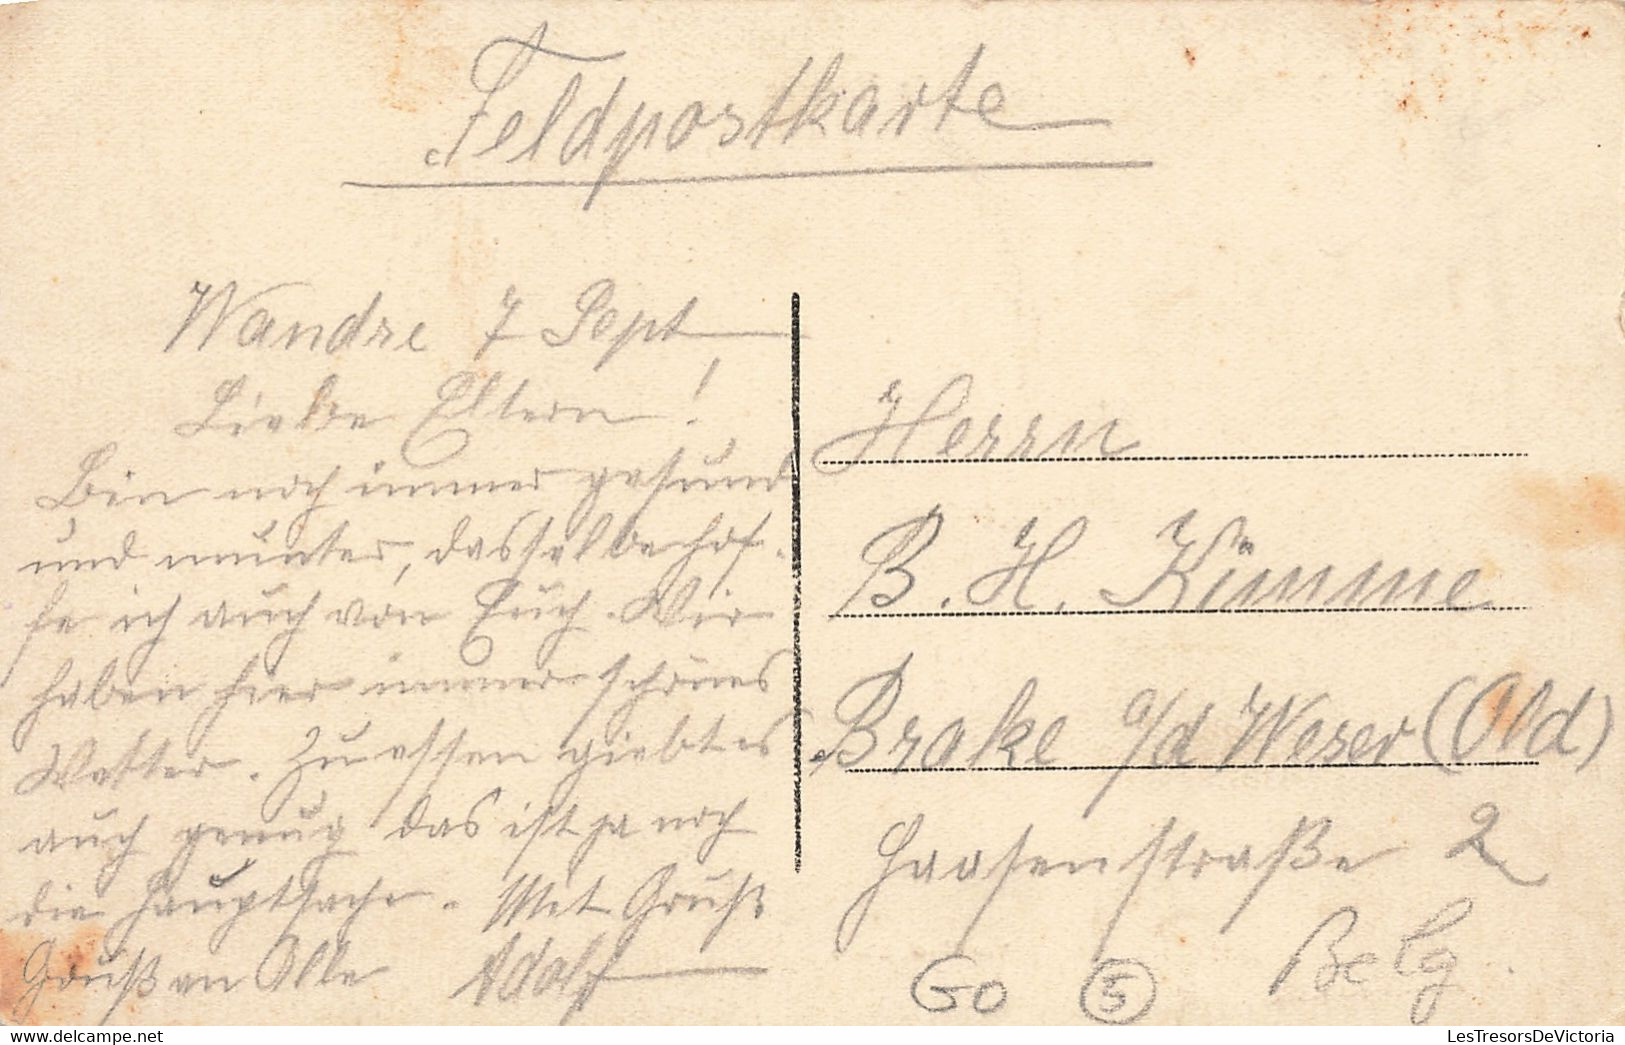 Feldpostkarte
Wandre 7 Sept
Liebe Eltern!
Bin noch immer gesund
und munter, dasselbe hof-
fe ich auch von Euch. Wir
haben hier immer schönes
Wetter. Zu essen giebt es
auch genug das ist ja noch
die Hauptsache. Mit Gruß
Gruß an Alle Adolf
Herrn
B. H. Kimme
Brake a/d Weser (Old)
Haasenstraße 2
Belg
GO 5
LesTresorsDeVictoria